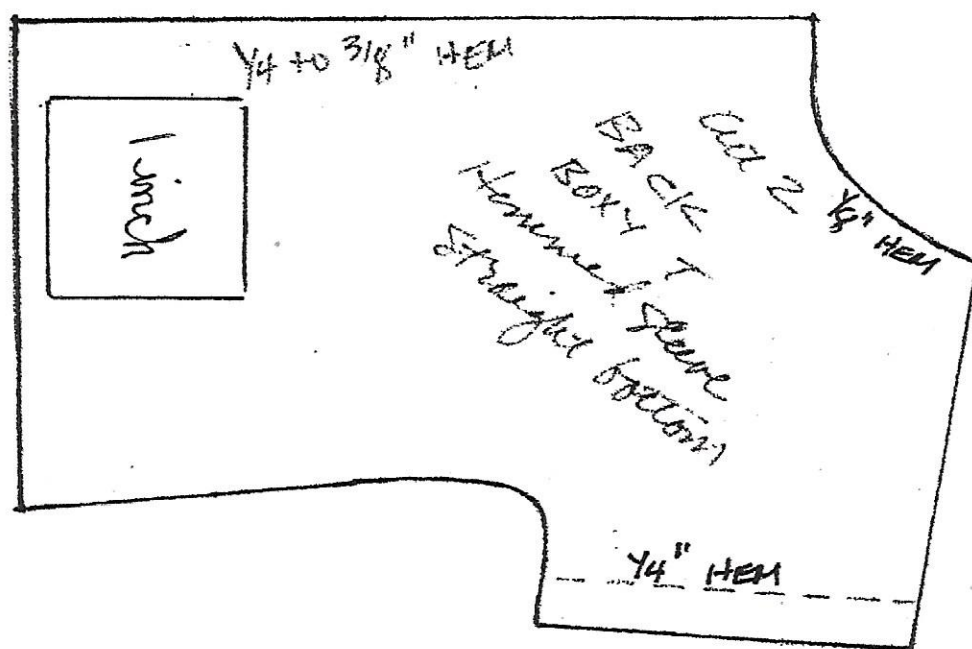 1/4 to 3/8" HEM
1 inch
Cut 2
BACK
BOXY T
Hemmed Sleeve
Straight bottom
1/8" HEM
1/4" HEM